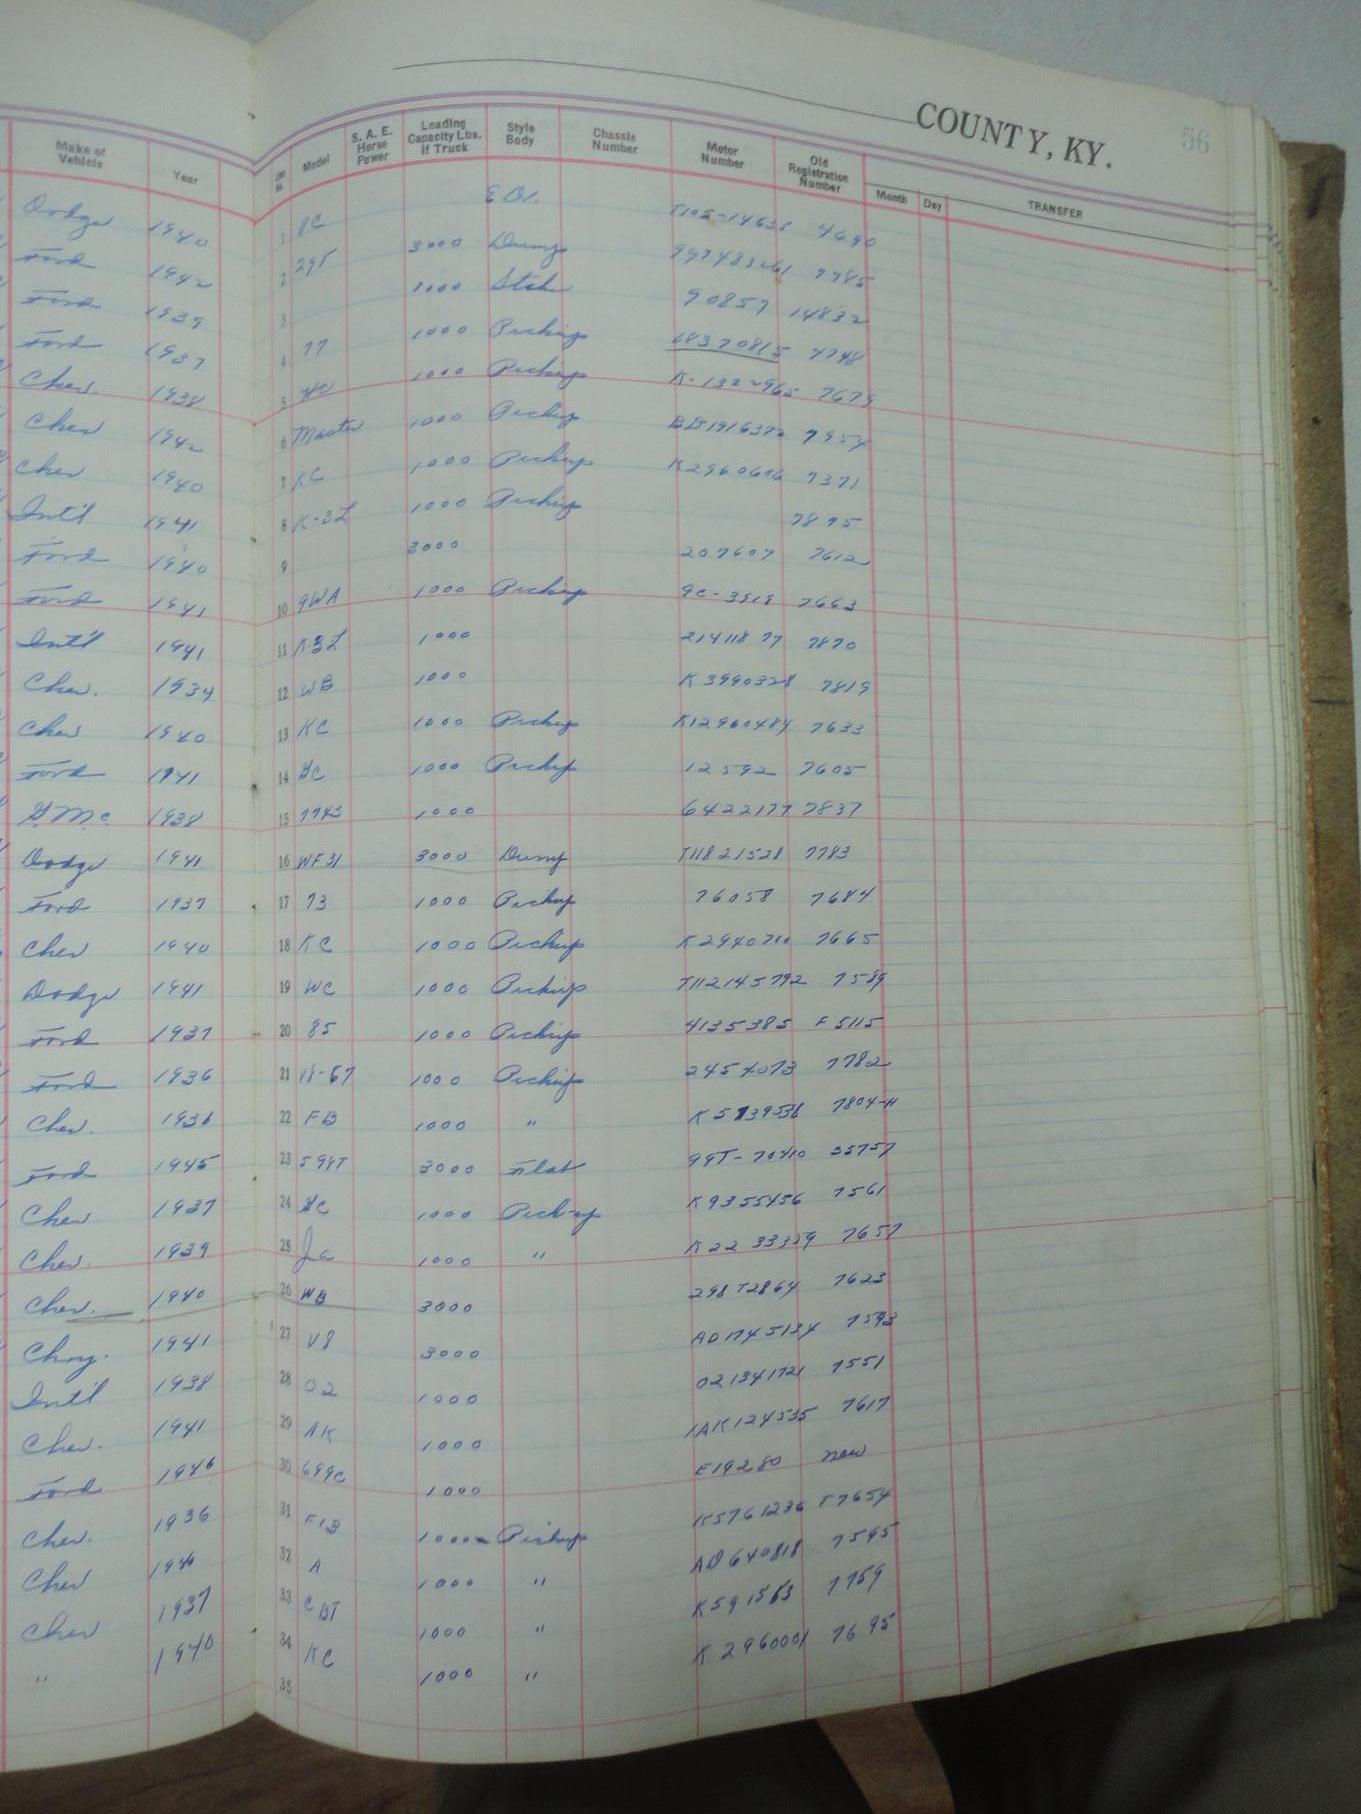 COUNTY, KY. 56
Make of Vehicle Year Line No. Model S. A. E. Horse Power Loading Capacity Lbs. if Truck Style Body Chassis Number Motor Number Old Registration Number Month Day TRANSFER
Dodge 1940 1 4690
Ford 1942 2 29T 3000 Dump 7785
Ford 1939 3 Stake 90857 14832
Ford 1937 4 77 1000 Pickup 18370815 7748
Chev. 1938 5 1000 Pickup K-1322965 7679
Chev 1942 6 Master 1000 Pickup 7954
Chev 1940 7 KC 1000 Pickup K2960606 7371
Int'l 1941 8 K-3L 1000 Pickup 7875
Ford 1940 9 3000 207607 7612
Ford 1941 10 9WA 1000 Pickup 9C-3519 7663
Int'l 1941 11 K-3L 1000 21411877 7870
Chev. 1934 12 WB 1000 K3990328 7819
Chev 1940 13 KC 1000 Pickup K12960484 7633
Ford 1941 14 GC 1000 Pickup 12592 7605
G.M.C. 1938 15 1000 6422177 7837
Dodge 1941 16 WF31 3000 Dump T11821528 7783
Ford 1937 17 73 1000 Pickup 76058 7684
Chev 1940 18 KC 1000 Pickup K2940710 7665
Dodge 1941 19 WC 1000 Pickup T112145792 7589
Ford 1937 20 85 1000 Pickup 4135385 F5115
Ford 1936 21 1000 Pickup 2454073 7782
Chev. 1936 22 FB 1000 " 7804-H
Ford 1945 23 599T 3000 Flat 99T-70410 35757
Chev. 1937 24 GC 1000 Pick-up K9355456 7561
Chev. 1939 25 Ja 1000 " K2233359 7657
Chev. 1940 26 WB 3000 298T2864 7623
Chry. 1941 27 V8 3000 7593
Int'l 1938 28 02 1000 021341721 7551
Chev. 1941 29 AK 1000 1AK124535 7617
Ford 1946 30 699C 1000 E19280 new
Chev. 1936 31 1000 Pickup K5761236 T7654
Chev 32 A 1000 " AD640818 7595
Chev 1937 33 1000 " K591563 7759
" 1940 34 KC 1000 " K2960001 7695
35